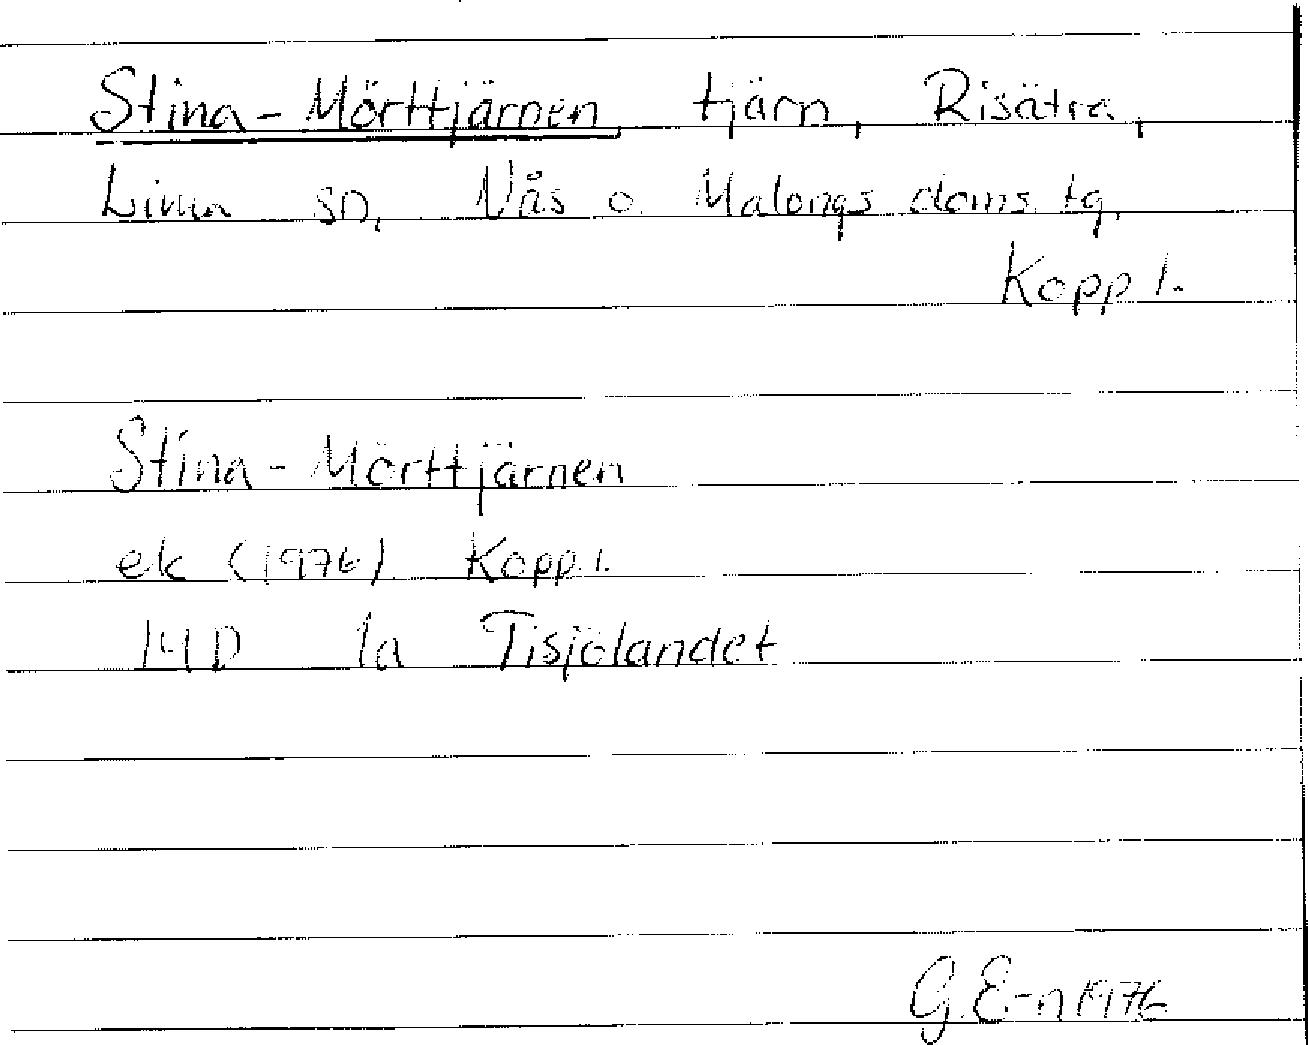 Stina-Mörttjärnen, tjärn, Risätra,
Lima sn, Nås o. Malungs doms. tg,
Kopp l.
Stina-Mörttjärnen
ek (1976) Kopp. l.
14 D 1a Tisjölandet
G. E-n 1976